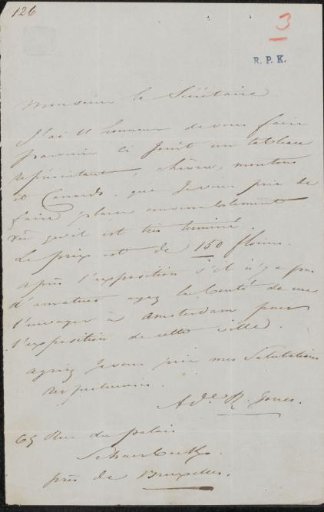 126
3
R. P. K.
Monsieur le Secrétaire
J'ai l'honneur de vous faire
parvenir ci joint un tableau
représentant, chèvre, moutons
et Canards, que je vous prie de
faire placer convenablement
vu qu'il est très terminé
Le prix est de 150 florins.
après l'exposition s'il n'y a pas
d'amateur ayez la bonté de me
l'envoyer à Amsterdam pour
l'exposition de cette ville.
agréez je vous prie mes Salutations
Ad. R. Jones.
65 Rue du palais
Schaerbeek
près de Bruxelles.